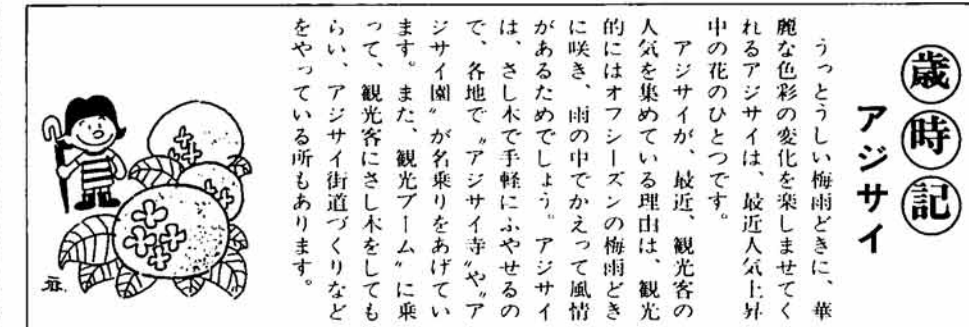 歳時記
アジサイ
うっとうしい梅雨どきに、華
麗な色彩の変化を楽しませてく
れるアジサイは、最近人気上昇
中の花のひとつです。
アジサイが、最近、観光客の
人気を集めている理由は、観光
的にはオフシーズンの梅雨どき
に咲き、雨の中でかえって風情
があるためでしょう。アジサイ
は、さし木で手軽にふやせるの
で、各地で〝アジサイ寺〟や〝ア
ジサイ園〟が名乗りをあげてい
ます。また、観光ブーム〟に乗
って、観光客にさし木をしても
らい、アジサイ街道づくりなど
をやっている所もあります。